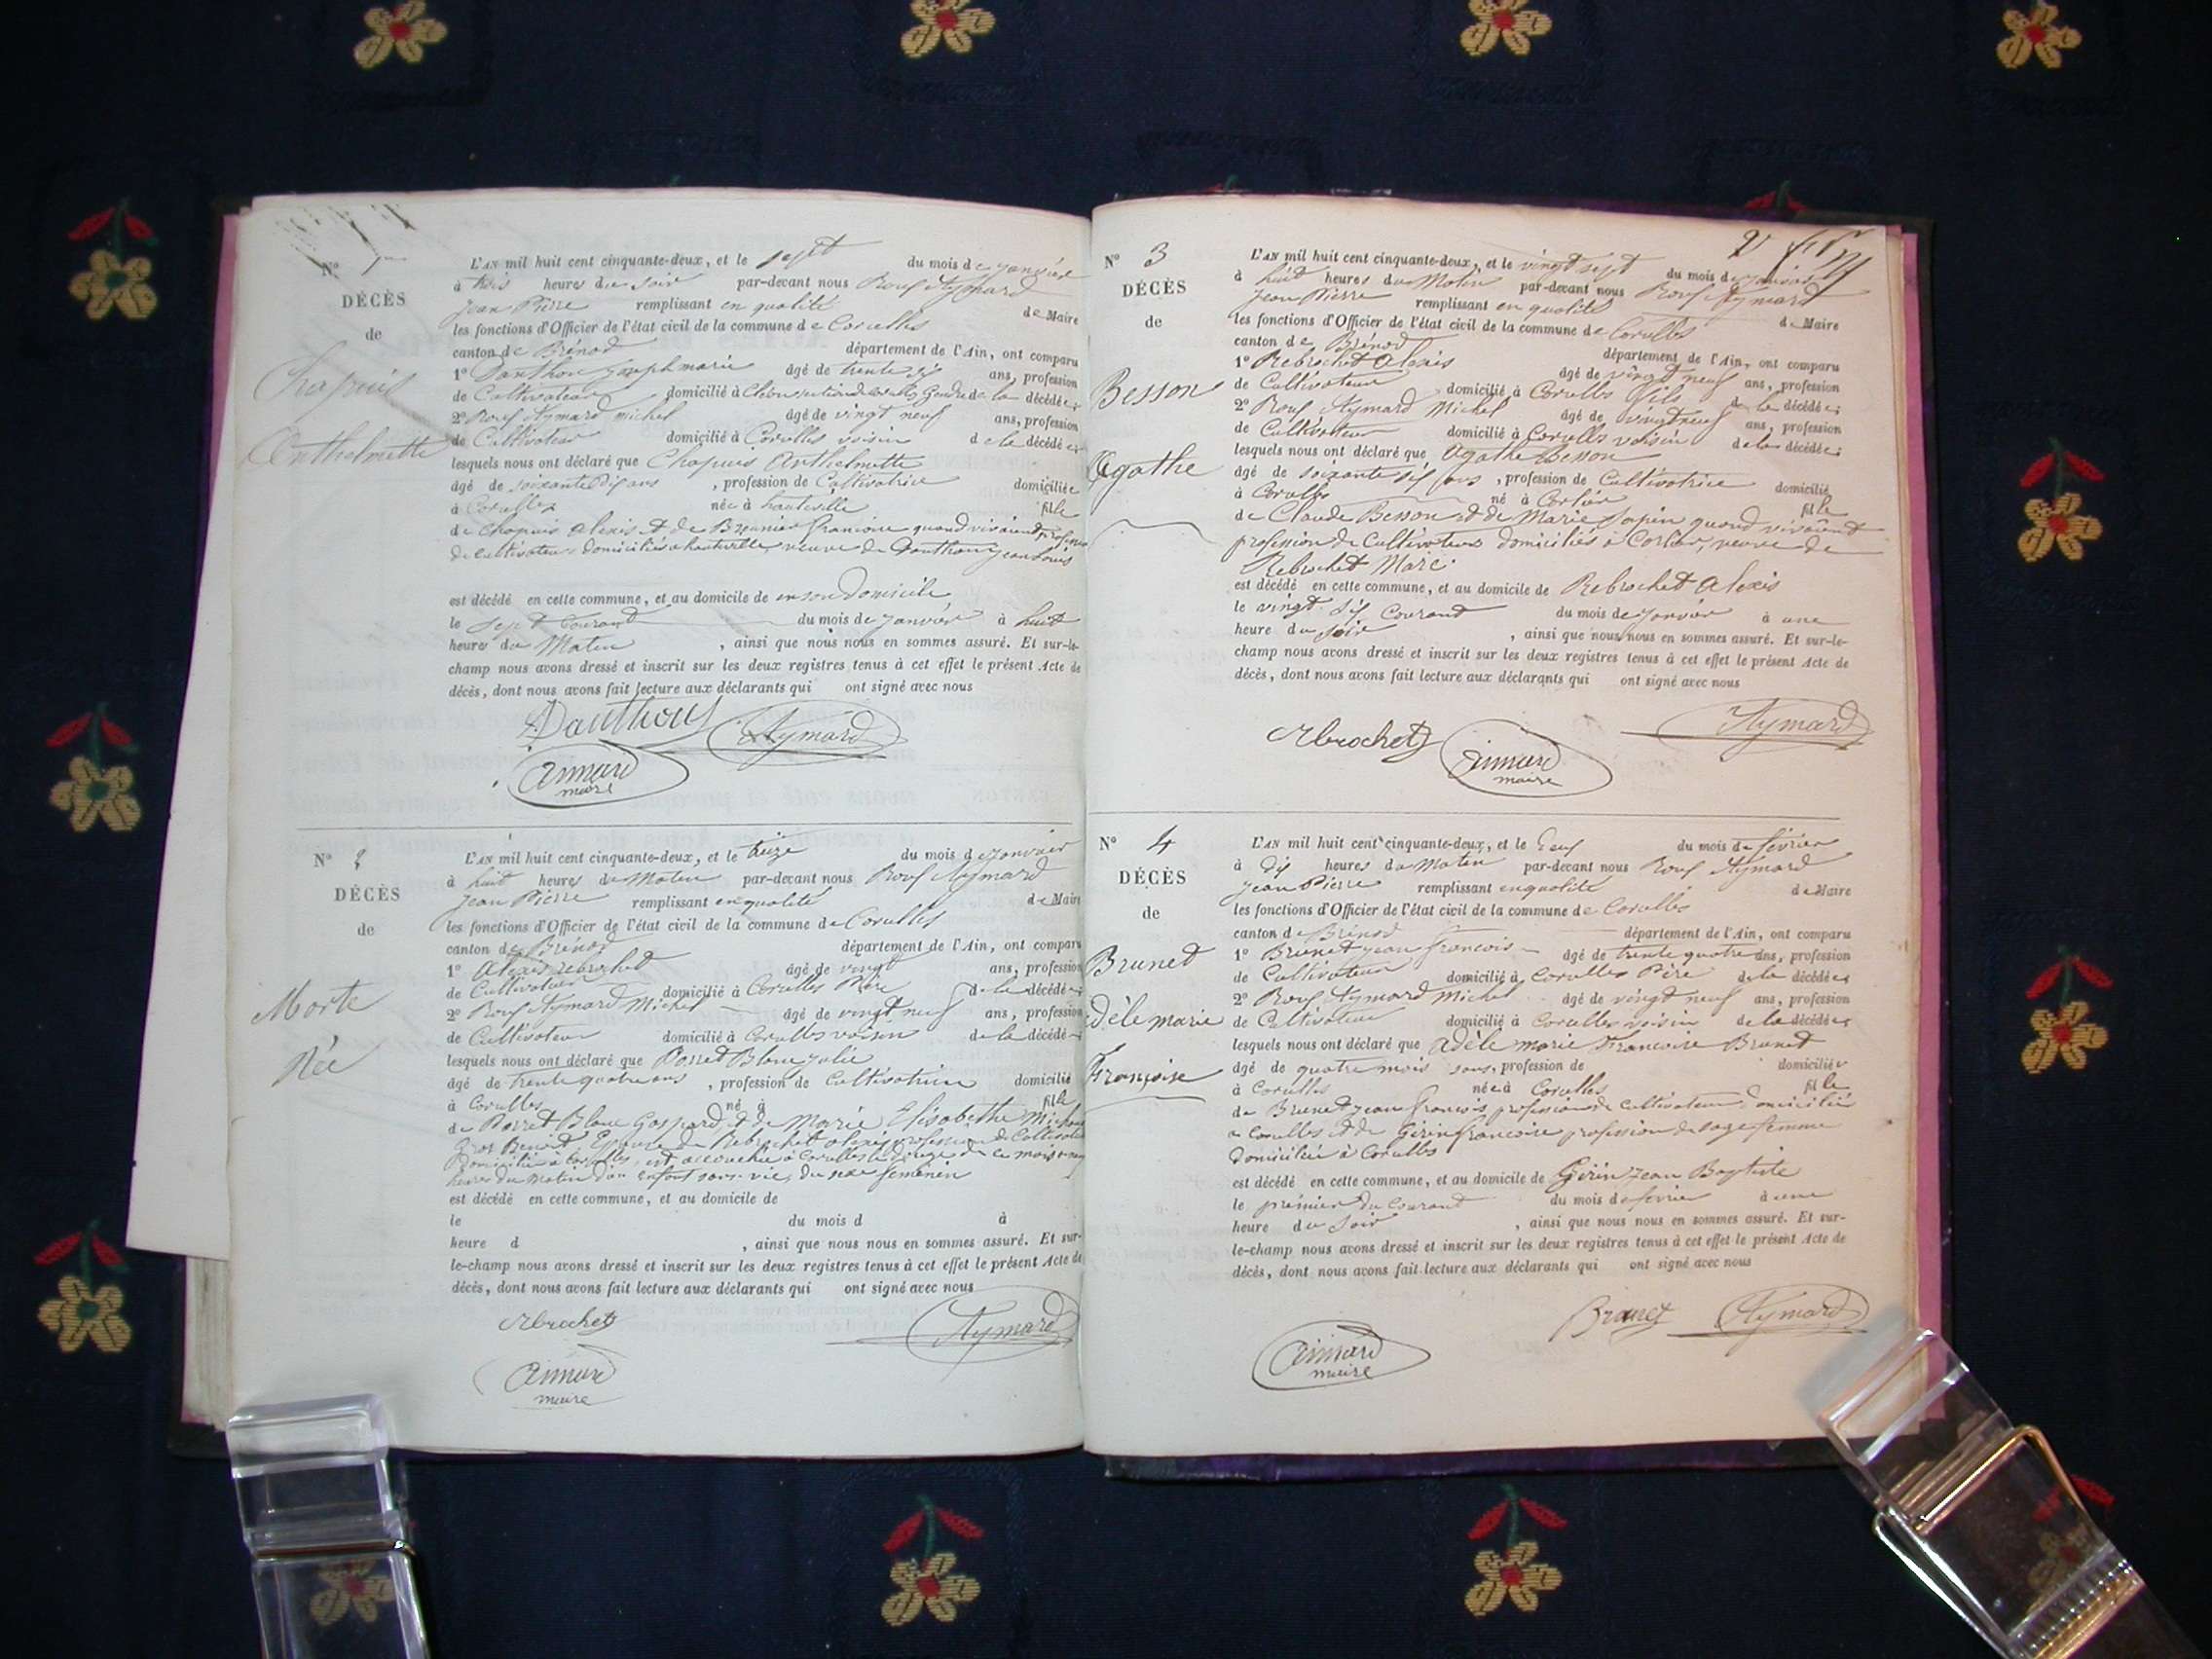 N° 1
DÉCÈS
de
Chapuis
Anthelmette
L'AN mil huit cent cinquante-deux, et le sept du mois de janvier
à trois heures du soir par-devant nous Rouf Aymard
Jean Pierre remplissant en qualité de Maire
les fonctions d'Officier de l'état civil de la commune de Corcelles
canton de Brénod département de l'Ain, ont comparu
1° Danthon Joseph marie âgé de trente six ans, profession
de Cultivateur domicilié à section de Corcelles Gendre de la décédée;
2° Rouf Aymard michel âgé de vingt neuf ans, profession
de Cultivateur domicilié à Corcelles voisin de la décédée;
lesquels nous ont déclaré que Chapuis Anthelmette
âgé de soixante dix ans , profession de Cultivatrice domiciliée
à Corcelles née à hauteville fille
de Chapuis alexis et de Brunier francoise quand vivaient profession
de cultivateurs domiciliés à hauteville, veuve de Danthon Jean Louis
est décédé en cette commune, et au domicile de en son Domicile
le sept Courant du mois de janvier à huit
heures du Matin , ainsi que nous nous en sommes assuré. Et sur-le-
champ nous avons dressé et inscrit sur les deux registres tenus à cet effet le présent Acte de
décès, dont nous avons fait lecture aux déclarants qui ont signé avec nous
Danthon Aymard
aimard
maire
N° 2
DÉCÈS
de
Morte
Née
L'AN mil huit cent cinquante-deux, et le treize du mois de janvier
à huit heures du Matin par-devant nous Rouf Aymard
Jean Pierre remplissant en qualité de Maire
les fonctions d'Officier de l'état civil de la commune de Corcelles
canton de Brénod département de l'Ain, ont comparu
1° Alexis rebrochet âgé de vingt ans, profession
de Cultivateur domicilié à Corcelles Père de la décédée;
2° Rouf Aymard Michel âgé de vingt neuf ans, profession
de Cultivateur domicilié à Corcelles voisin de la décédée;
lesquels nous ont déclaré que Porret Blanc Julie
âgé de trente quatre ans , profession de Cultivatrice domicilié
à Corcelles né à fille
de Porret Blanc Gaspard et de Marie Elisabethe
Benoit Epouse de Rebrochet alexis profession de Cultivateur
Domiciliée à Corcelles, est accouchée à Corcelles le douze de ce mois
heures du matin d'un enfant sans vie, du sexe feminin
est décédé en cette commune, et au domicile de
le du mois d à
heure d , ainsi que nous nous en sommes assuré. Et sur-
le-champ nous avons dressé et inscrit sur les deux registres tenus à cet effet le présent Acte de
décès, dont nous avons fait lecture aux déclarants qui ont signé avec nous
Rbrochet Aymard
aimard
maire
N° 3
DÉCÈS
de
Besson
Agathe
L'AN mil huit cent cinquante-deux, et le vingt sept du mois de janvier
à huit heures du Matin par-devant nous Rouf Aymard
Jean Pierre remplissant en qualité de Maire
les fonctions d'Officier de l'état civil de la commune de Corcelles
canton de Brénod département de l'Ain, ont comparu
1° Rebrochet Alexis âgé de vingt neuf ans, profession
de Cultivateur domicilié à Corcelles fils de la décédée;
2° Rouf Aymard Michel âgé de vingt neuf ans, profession
de Cultivateur domicilié à Corcelles voisin de la décédée;
lesquels nous ont déclaré que Agathe Besson
âgé de soixante six ans , profession de Cultivatrice domicilié
à Corcelles né à Corlier fille
de Claude Besson et de Marie Sapin quand vivaient
profession de Cultivateurs domiciliés à Corlier, veuve de
Rebrochet Marc
est décédé en cette commune, et au domicile de Rebrochet Alexis
le vingt six Courant du mois de janvier à une
heure du soir , ainsi que nous nous en sommes assuré. Et sur-le-
champ nous avons dressé et inscrit sur les deux registres tenus à cet effet le présent Acte de
décès, dont nous avons fait lecture aux déclarants qui ont signé avec nous
Aymard
Rbrochet aimard
maire
N° 4
DÉCÈS
de
Brunet
Adèle marie
Françoise
L'AN mil huit cent cinquante-deux, et le Deux du mois de février
à Dix heures du Matin par-devant nous Rouf Aymard
Jean Pierre remplissant en qualité de Maire
les fonctions d'Officier de l'état civil de la commune de Corcelles
canton de Brénod département de l'Ain, ont comparu
1° Brunet jean francois âgé de trente quatre ans, profession
de Cultivateur domicilié à Corcelles Père de la décédée
2° Rouf Aymard Michel âgé de vingt neuf ans, profession
de Cultivateur domicilié à Corcelles voisin de la décédée
lesquels nous ont déclaré que Adèle marie Francoise Brunet
âgé de quatre mois sans, profession de domiciliée
à Corcelles née à Corcelles fille
de Brunet jean francois profession de cultivateur domicilié
à Corcelles et de Girin francoise profession de sage femme
domiciliée à Corcelles
est décédé en cette commune, et au domicile de Girin Jean Baptiste
le premier du Courant du mois de fevrier à une
heure du Soir , ainsi que nous nous en sommes assuré. Et sur-
le-champ nous avons dressé et inscrit sur les deux registres tenus à cet effet le présent Acte de
décès, dont nous avons fait lecture aux déclarants qui ont signé avec nous
Brunet Aymard
aimard
maire